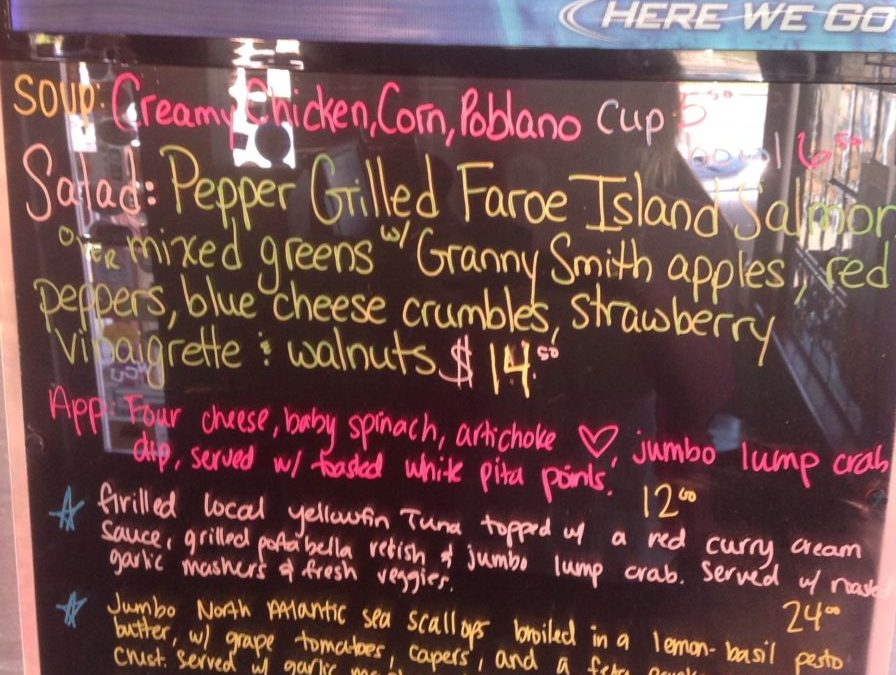 HERE WE GO
Soup: Creamy Chicken, Corn, Poblano Cup 5⁵⁰
bowl 6⁵⁰
Salad: Pepper Grilled Faroe Island Salmon
OVER mixed greens w/ Granny Smith apples, red
peppers, blue cheese crumbles, strawberry
vinaigrette & walnuts $14.⁵⁰
App: Four cheese, baby spinach, artichoke ♡, jumbo lump crab
dip, served w/ toasted white pita points.
12⁰⁰
☆ Grilled local yellowfin Tuna topped w/ a red curry cream
sauce, grilled portabella relish & jumbo lump crab. Served w/
garlic mashers & fresh veggies.
24⁰⁰
☆ Jumbo North Atlantic sea scallops broiled in a lemon-basil pesto
butter, w/ grape tomatoes, capers, and a
crust. Served w/ garlic